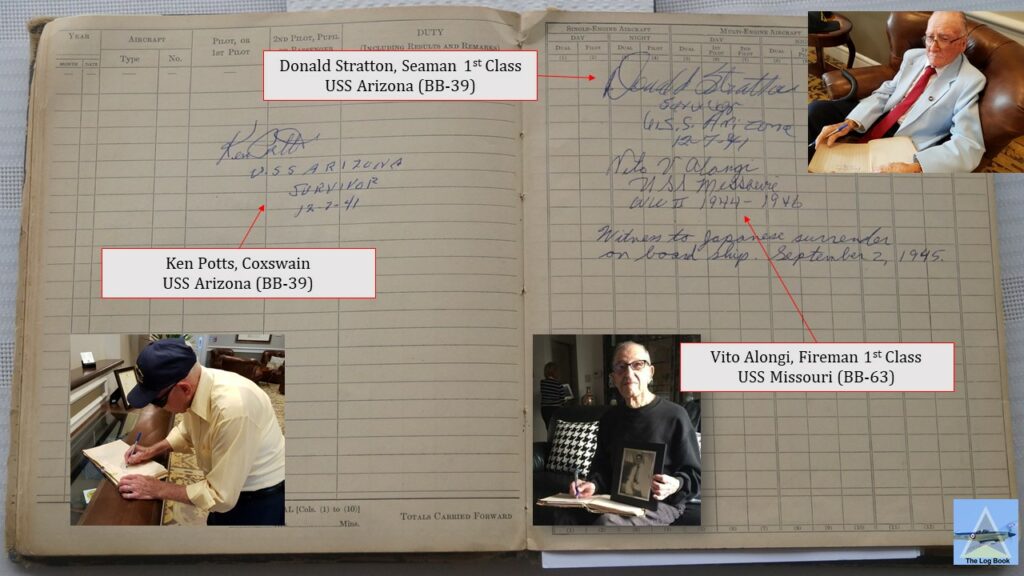 YEAR
AIRCRAFT
PILOT, OR
1ST PILOT
2ND PILOT, PUPIL
OR PASSENGER
DUTY
(INCLUDING RESULTS AND REMARKS)
MONTH DATE
Type
No.
Ken Potts
USS ARIZONA
SURVIVOR
12-7-41
Donald Stratton, Seaman 1st Class
USS Arizona (BB-39)
Ken Potts, Coxswain
USS Arizona (BB-39)
[Cols. (1) to (10)]
Mins.
TOTALS CARRIED FORWARD
SINGLE-ENGINE AIRCRAFT
MULTI-ENGINE AIRCRAFT
DAY
NIGHT
DAY
DUAL
PILOT
DUAL
PILOT
DUAL
1ST PILOT
2ND PILOT
DUAL
Donald Stratton
Survivor
U.S.S Arizona
12-7-41
Vito V Alongi
USS Missouri
WW II 1944-1946
Witness to Japanese surrender
on board ship. September 2, 1945.
Vito Alongi, Fireman 1st Class
USS Missouri (BB-63)
The Log Book